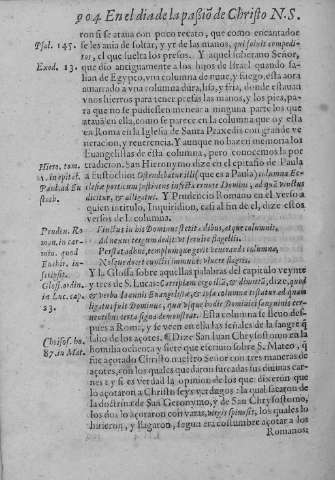 904 En el dia de la passiō de Christo N.S.
ron si se ataua con poco recato, que como encantador
Psal. 145.
se les auia de soltar, y yr de las manos, qui soluit compedi-
tos, el que suelta los presos. Y aquel soberano Señor,
Exod. 13.
que dio antiguamente a los hijos de Israel quando sa-
lian de Egypto, vna columna de nuue, y fuego, esta aora
amarrado a vna columna dura, lisa, y fria, donde estauan
vnos hierros para tener presas las manos, y los pies, para
que no se pudiessen menear a ninguna parte los que
atauā en ella, como se parece en la columna que oy esta
en Roma en la Iglesia de Santa Praxedis con grande ve
neracion, y reuerencia. Y aunque no hazen memoria los
Euangelistas de esta columna, pero conocemosla por
Hiero. tom.
tradicion. San Hieronymo dize en el epitafio de Paula
in epitaf.
à Eustochio: Ostendebatur illi (que es a Paula) columna Ec-
Paulæ ad Eu
clesiæ porticum sustinens infecta cruore Domini, ad quā vinctus
stoch.
dicitur, & flagellatus. Y Prudencio Romano en el verso a
quien intitulò, Inquiridion, casi al fin de el, dize estos
versos de la columna.
Pruden. Ro
Vinctus in his Dominus stetit ædibus, atque columnis,
man. in car-
Adnexus tergum dedit vt seruire flagellis.
min. quod
Perstat adhuc, templumque gerit veneranda columna,
Nosque docet cunctis immunes viuere flagris.
scripsit.
Y la Glossa sobre aquellas palabras del capitulo veynte
Glos. ordin.
y tres de S. Lucas: Corripiam ergo illū, & dimittā, dize, quod
in Luc. cap.
& verbo Ioannis Euangelistæ, & ipsa columna testatur ad quam
23.
ligatus fuit Dominus, quæ vsque hodie Dominici sanguinis cer-
nentibus certa signa demonstrat. Esta columna se lleuo des-
pues a Roma, y se veen en ella las señales de la sangre q̄
Chrisos. ho.
salio de los açotes. ¶ Dize San Iuan Chrysostomo en la
87. in Mat.
homilia ochenta y siete que escriuio sobre S. Mateo, q̄
fue açotado Christo nuestro Señor con tres maneras de
açotes, con los quales que daron surcadas sus diuinas car-
nes: y si es verdad la opinion de los que dixeron que
lo açotaron a Christo seys verdugos: la qual sacaron de
la doctrina de San Geronymo, y de San Chrysostomo,
los dos lo açotaron con varas, virgis spinosis, los quales lo
hirieron, y llagaron, segun era costumbre açotar a los
Romanos: